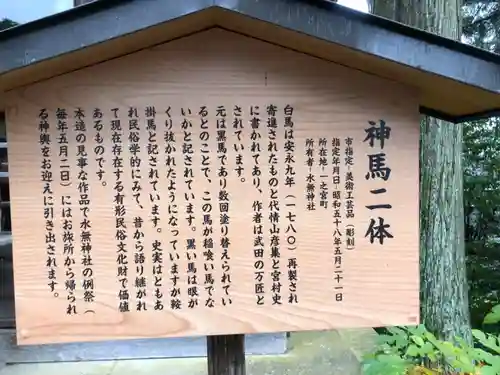 神馬二体
市指定・美術工芸品（彫刻）
指定年月日・昭和五十八年五月二十一日
所在地・一之宮町
所有者・水無神社
白馬は安永九年（一七八〇）再製され
寄進されたものと代情山彦集と宮村史
に書かれてあり、作者は武田の万匠と
されています。
元は黒馬であり数回塗り替えられてい
るとのことで、この馬が稲喰い馬でな
いかと記されています。黒い馬は眼が
くり抜かれたようになっていますが鞍
掛馬と記されています。史実はともあ
れ民俗学的にみて、昔から語り継がれ
て現在存在する有形民俗文化財で価値
あるものです。
木造の見事な作品で水無神社の例祭（
毎年五月二日）にはお旅所から帰られ
る神輿をお迎えに引き出されます。